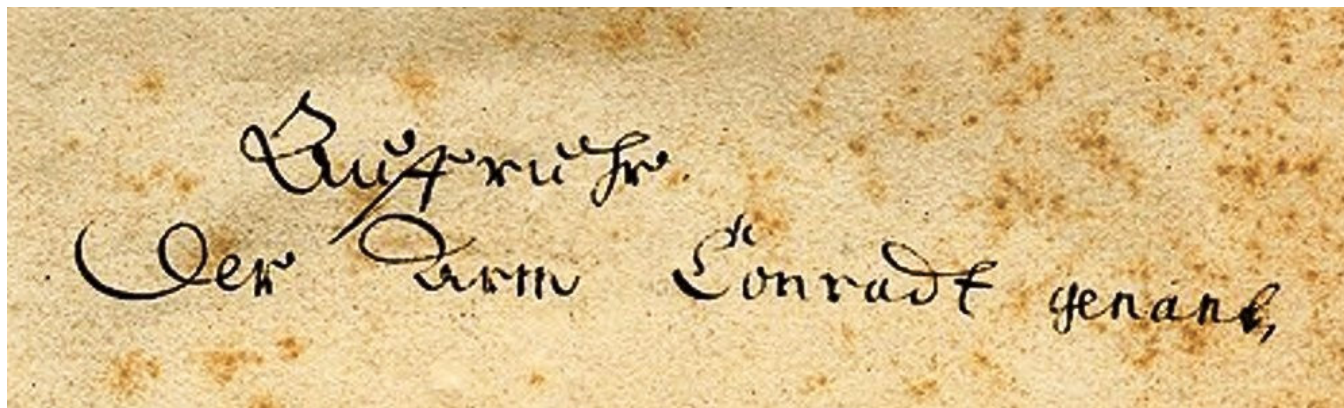 Auffruhr
Der Arm Conradt genant,